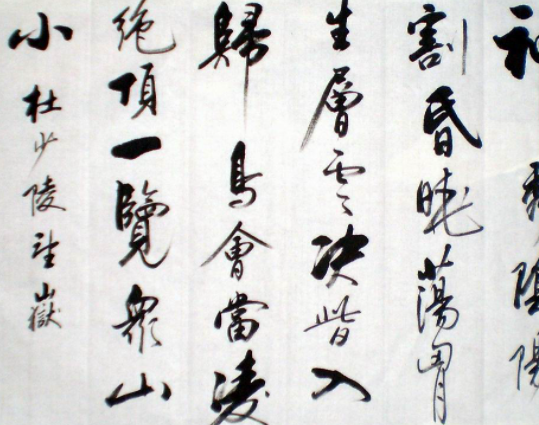 神秀陰陽
割昏曉蕩胷
生層雲決眥入
歸鳥會當凌
絶頂一覽衆山
小
杜少陵望嶽